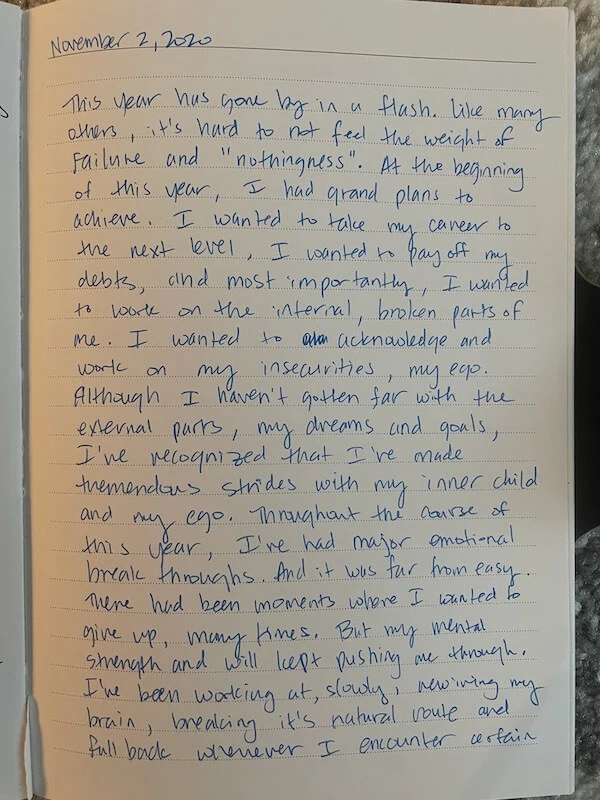 November 2, 2020
This year has gone by in a flash. Like many
others, it's hard to not feel the weight of
failure and "nothingness". At the beginning
of this year, I had grand plans to
achieve. I wanted to take my career to
the next level, I wanted to pay off my
debts, and most importantly, I wanted
to work on the internal, broken parts of
me. I wanted to acknowledge and
work on my insecurities, my ego.
Although I haven't gotten far with the
external parts, my dreams and goals,
I've recognized that I've made
tremendous strides with my inner child
and my ego. Throughout the course of
this year, I've had major emotional
break throughs. And it was far from easy.
There had been moments where I wanted to
give up, many times. But my mental
strength and will kept pushing me through.
I've been working at, slowly, rewiring my
brain, breaking it's natural route and
fall back whenever I encounter certain